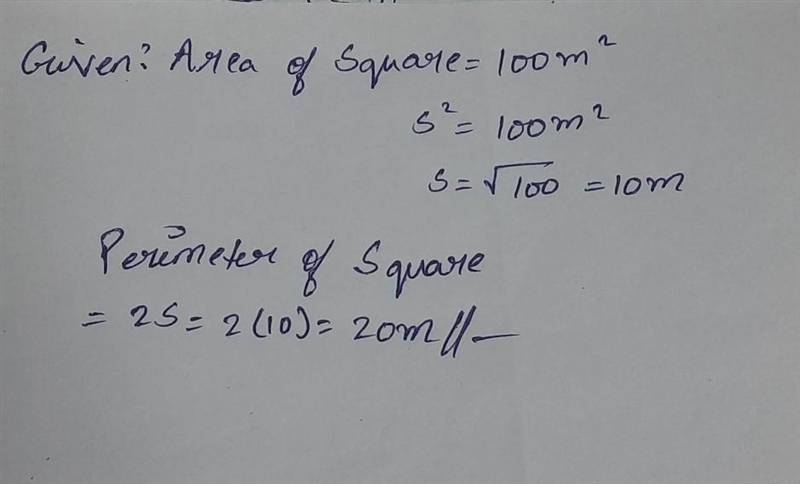 Given: Area of Square = 100m²
S² = 100m²
S = √100 = 10m
Perimeter of Square
= 2S = 2(10) = 20m//—